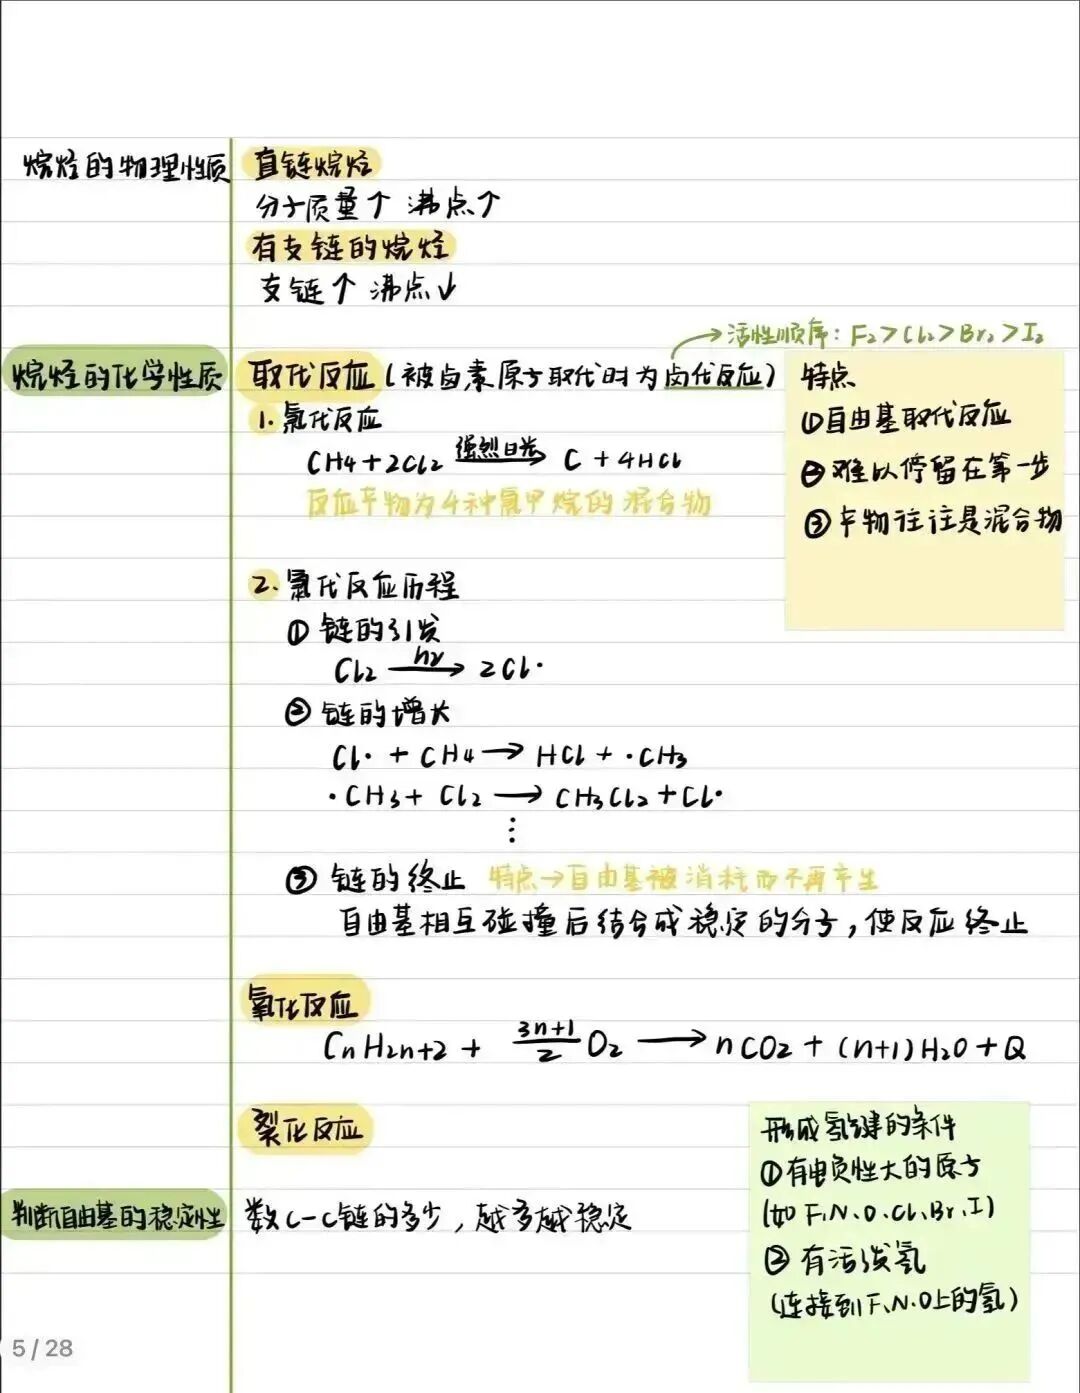 烷烃的物理性质
直链烷烃
分子质量↑ 沸点↑
有支链的烷烃
支链↑ 沸点↓
→活性顺序：F₂>Cl₂>Br₂>I₂
烷烃的化学性质
取代反应(被卤素原子取代时为卤代反应)
1.氯代反应
CH4+2Cl2 强烈日光→ C+4HCl
反应产物为4种氯甲烷的混合物
特点
①自由基取代反应
②难以停留在第一步
③产物往往是混合物
2.氯代反应历程
①链的引发
Cl2 hν→ 2Cl·
②链的增长
Cl· + CH4→HCl+·CH3
·CH3+ Cl2→CH3Cl2+Cl·
⋮
③链的终止 特点→自由基被消耗而不再产生
自由基相互碰撞后结合成稳定的分子，使反应终止
氧化反应
CnH2n+2 + 3n+1/2 O2→nCO2+(n+1)H2O+Q
裂化反应
判断自由基的稳定性
数C-C链的多少，越多越稳定
形成氢键的条件
①有电负性大的原子
(如F、N、O、Cl、Br、I)
②有活泼氢
(连接到F、N、O上的氢)
5 / 28